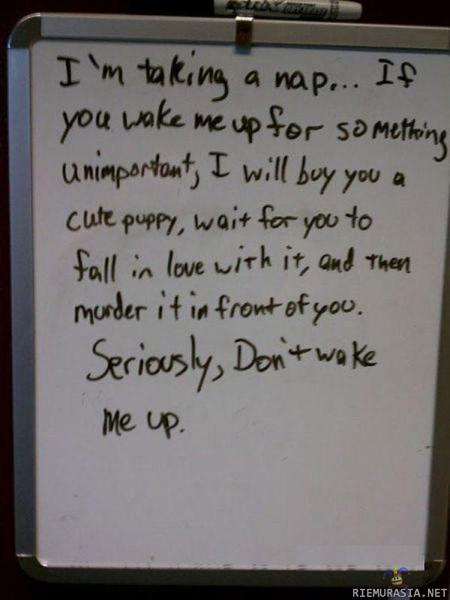 I'm taking a nap... If
you wake me up for something
unimportant, I will buy you a
cute puppy, wait for you to
fall in love with it, and then
murder it in front of you.
Seriously, Don't wake
me up.
RIEMURASIA.NET